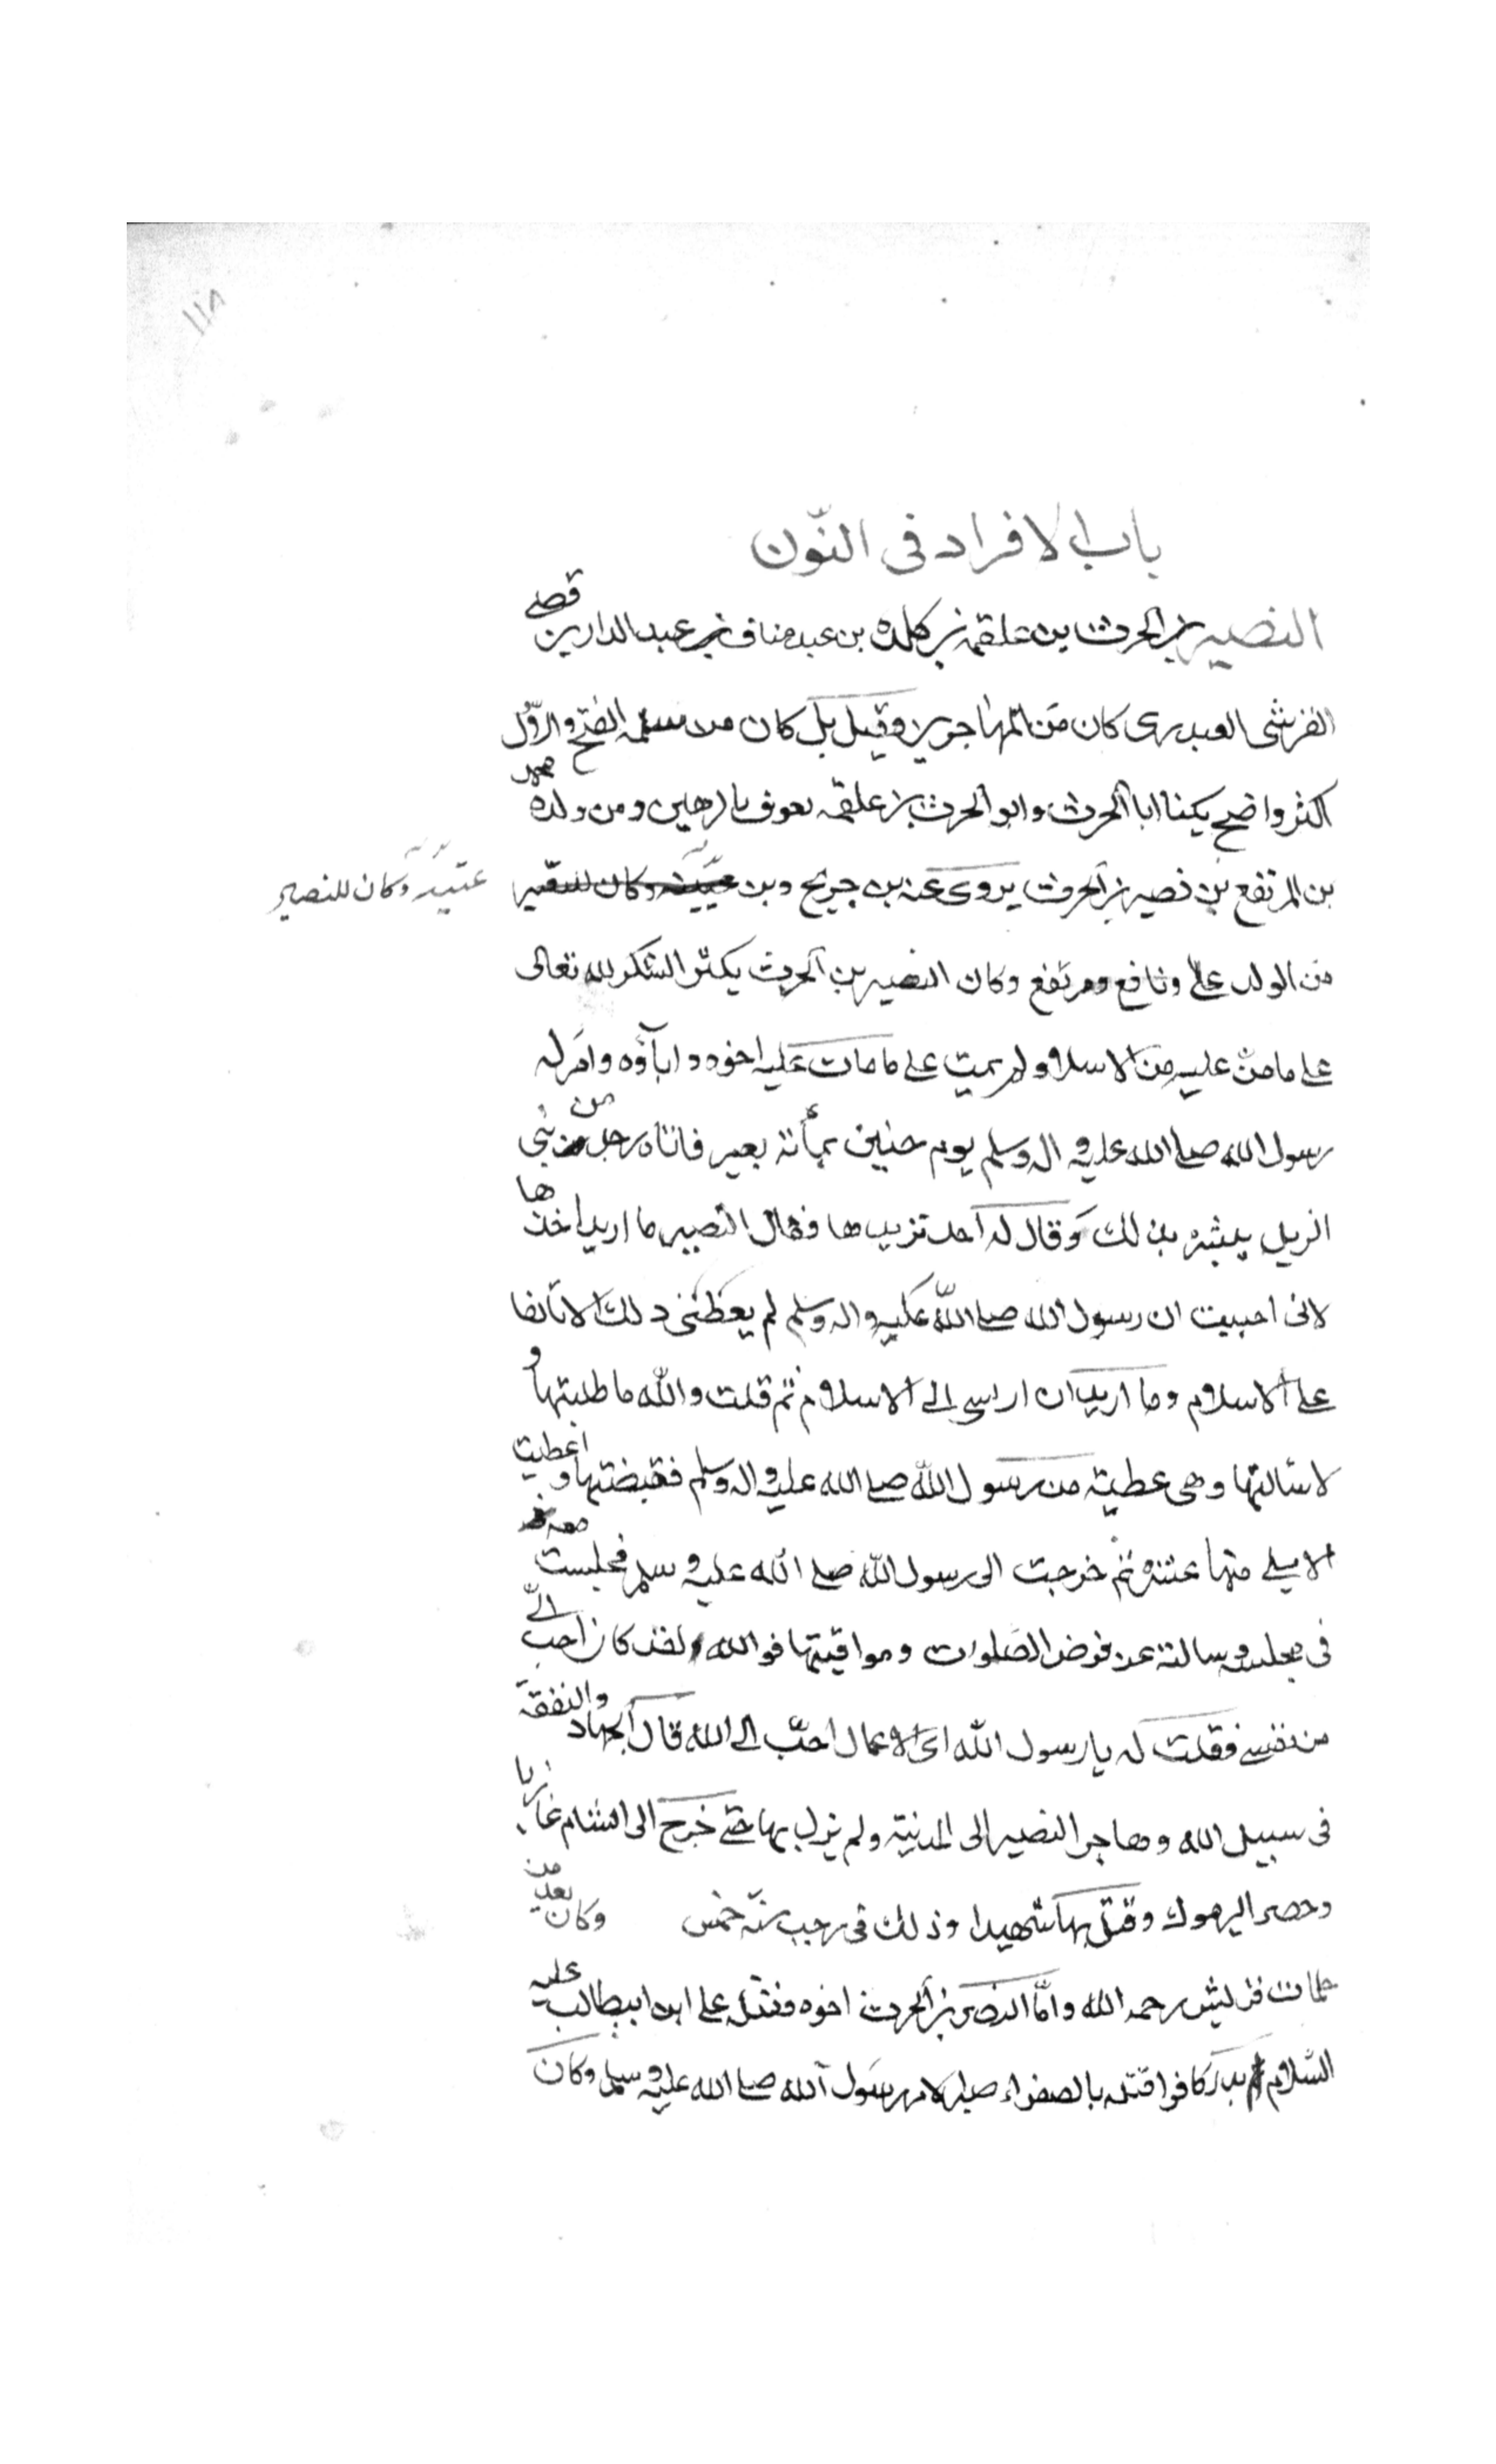 ١١٨
باب الافراد فى النّون
النضير بن الحرث بن علقمة بن كلده بن عبد مناف بن عبد الدار بن قصى
القرشى العبدرى كان من المهاجرين وقيل بل كان من مسلمة الفتح والاوّل
اكثر واصح يكنا ابا الحرث وابو الحرث بن علقمة يعرف بالرهين ومن ولده محمد
بن المرتفع بن نضير بن الحرث يروى عنه بن جريج وبن عيينة وكان للنضير
من الولد على ونافع ومرتفع وكان النضير بن الحرث يكثر الشكر لله تعالى
على ما منّ عليه من الاسلام ولم يمت على ما مات عليه اخوه واباؤه وامر له
رسول الله صلى الله عليه واله وسلم يوم حنين بمأئة بعير فاتاه رجل من بنى
الديل يبشره بذلك وقال له احد تزيدها فقال النضير ما اريد اخذها
لانى احببت ان رسول الله صلى الله عليه واله وسلم لم يعطنى ذلك الا تألفا
على الاسلام وما اريد ان ارتسى الى الاسلام ثم قلت والله ما طلبتها و
لا سالتها وهى عطية من رسول الله صلى الله عليه واله وسلم فقبضتها واعطيت
الديلى منها عشرة ثم خرجت الى رسول الله صلى الله عليه وسلم فجلست معه
فى مجلسه وسالته عن فرض الصلوات ومواقيتها فوالله لقد كان احب الىّ
من نفسى فقلت له يا رسول الله اى الاعمال احبّ الى الله قال الجهاد والنفقة
فى سبيل الله وهاجر النضير الى المدنية ولم يزل بها حتى خرج الى الشام غازيا
وحضر اليرموك وقتل بها شهيدا وذلك فى رجب سنة خمس وكان يعد من
حلمات قريش رحمه الله وامّا النضر بن الحرث اخوه فقتل على ابن ابيطالب عليه
السّلام بدر كافرا قتله بالصفراء صبرا لامر رسول الله صلى الله عليه وسلم وكان
عتيبة وكان للنضير